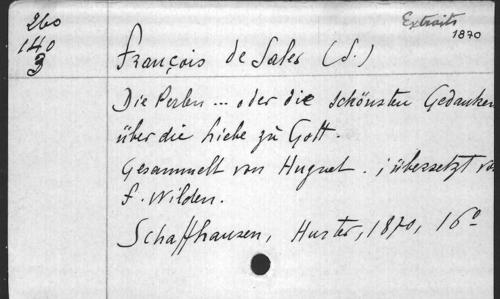 260
140
3
Extraits
1870
François de Sales (S.)
Die Perlen ... oder die schönsten Gedanken
über die Liebe zu Gott.
Gesammelt von Huguet. ; übersetzt vo
F. Wilden.
Schaffhausen, Hurter, 1870, 16°